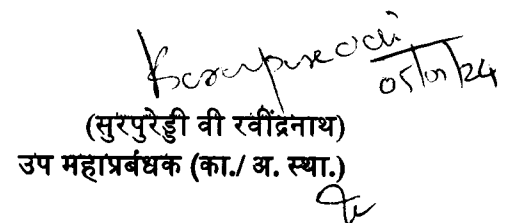 05/01/24
(सुरपुरेड्डी वी रवींद्रनाथ)
उप महाप्रबंधक (का./ अ. स्था.)